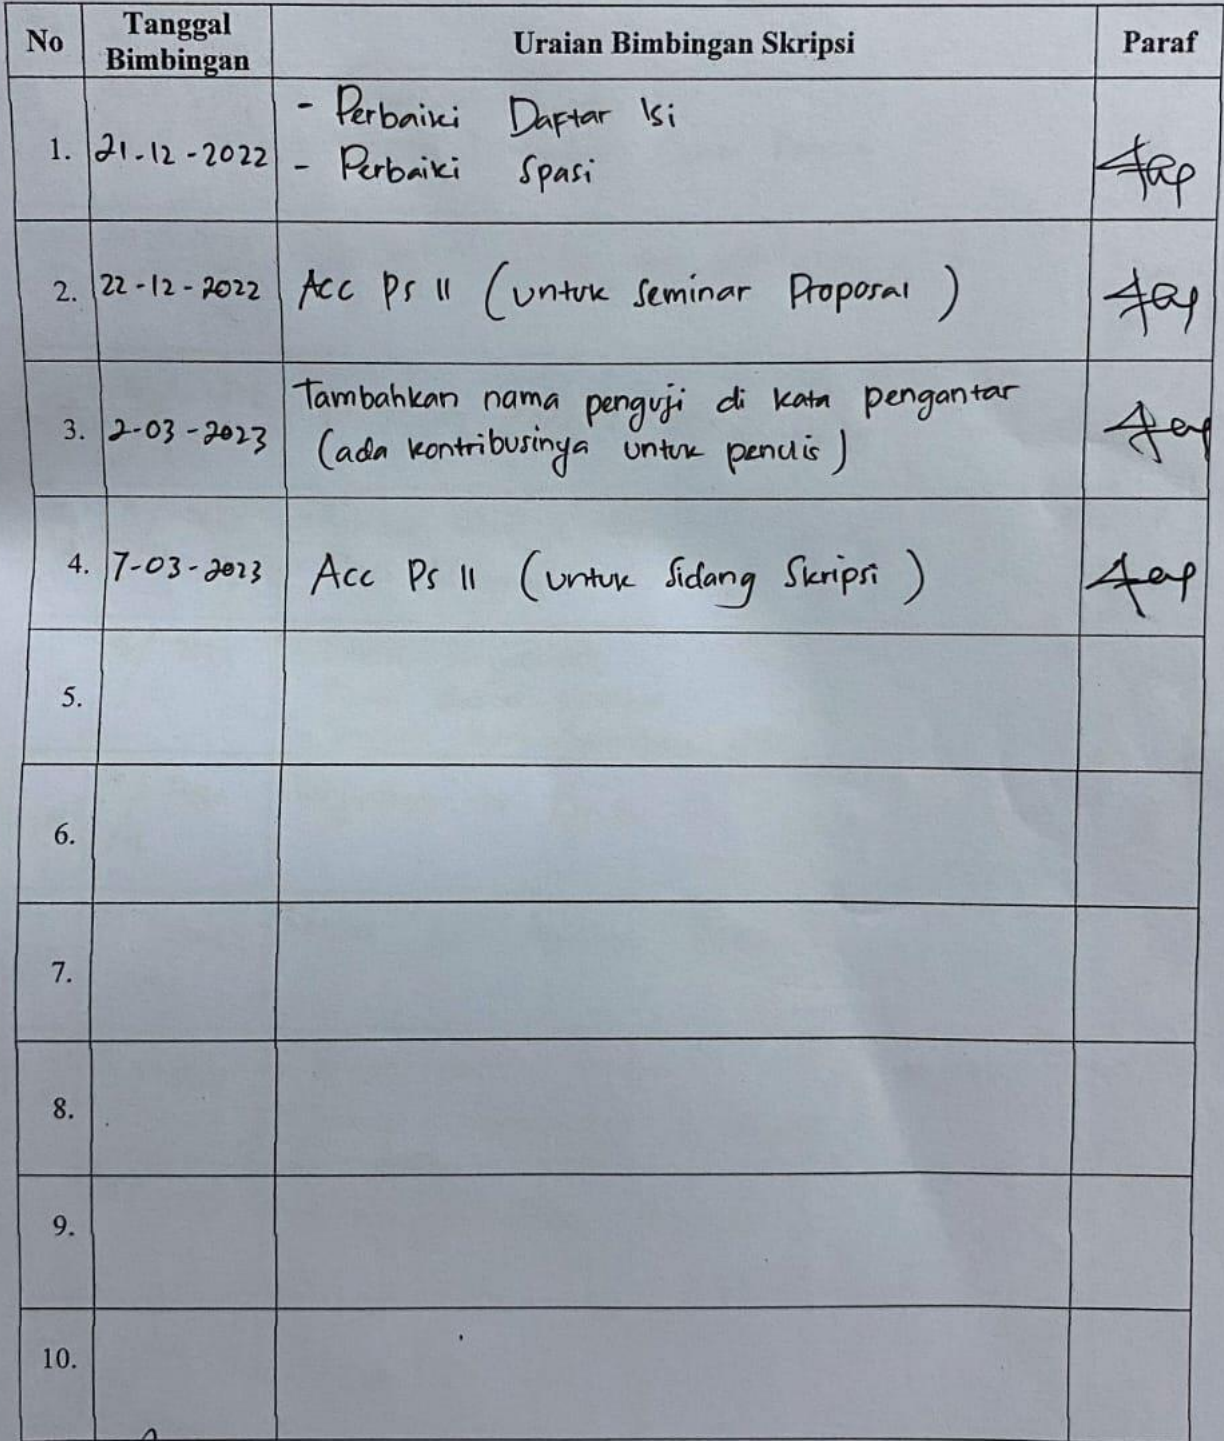 No Tanggal Bimbingan Uraian Bimbingan Skripsi Paraf
- Perbaiki Daftar Isi
1. 21-12-2022 - Perbaiki Spasi
2. 22-12-2022 Acc Ps II (untuk Seminar Proposal)
Tambahkan nama penguji di kata pengantar
3. 2-03-2023 (ada kontribusinya untuk penulis)
4. 7-03-2023 Acc Ps II (untuk Sidang Skripsi)
5.
6.
7.
8.
9.
10.